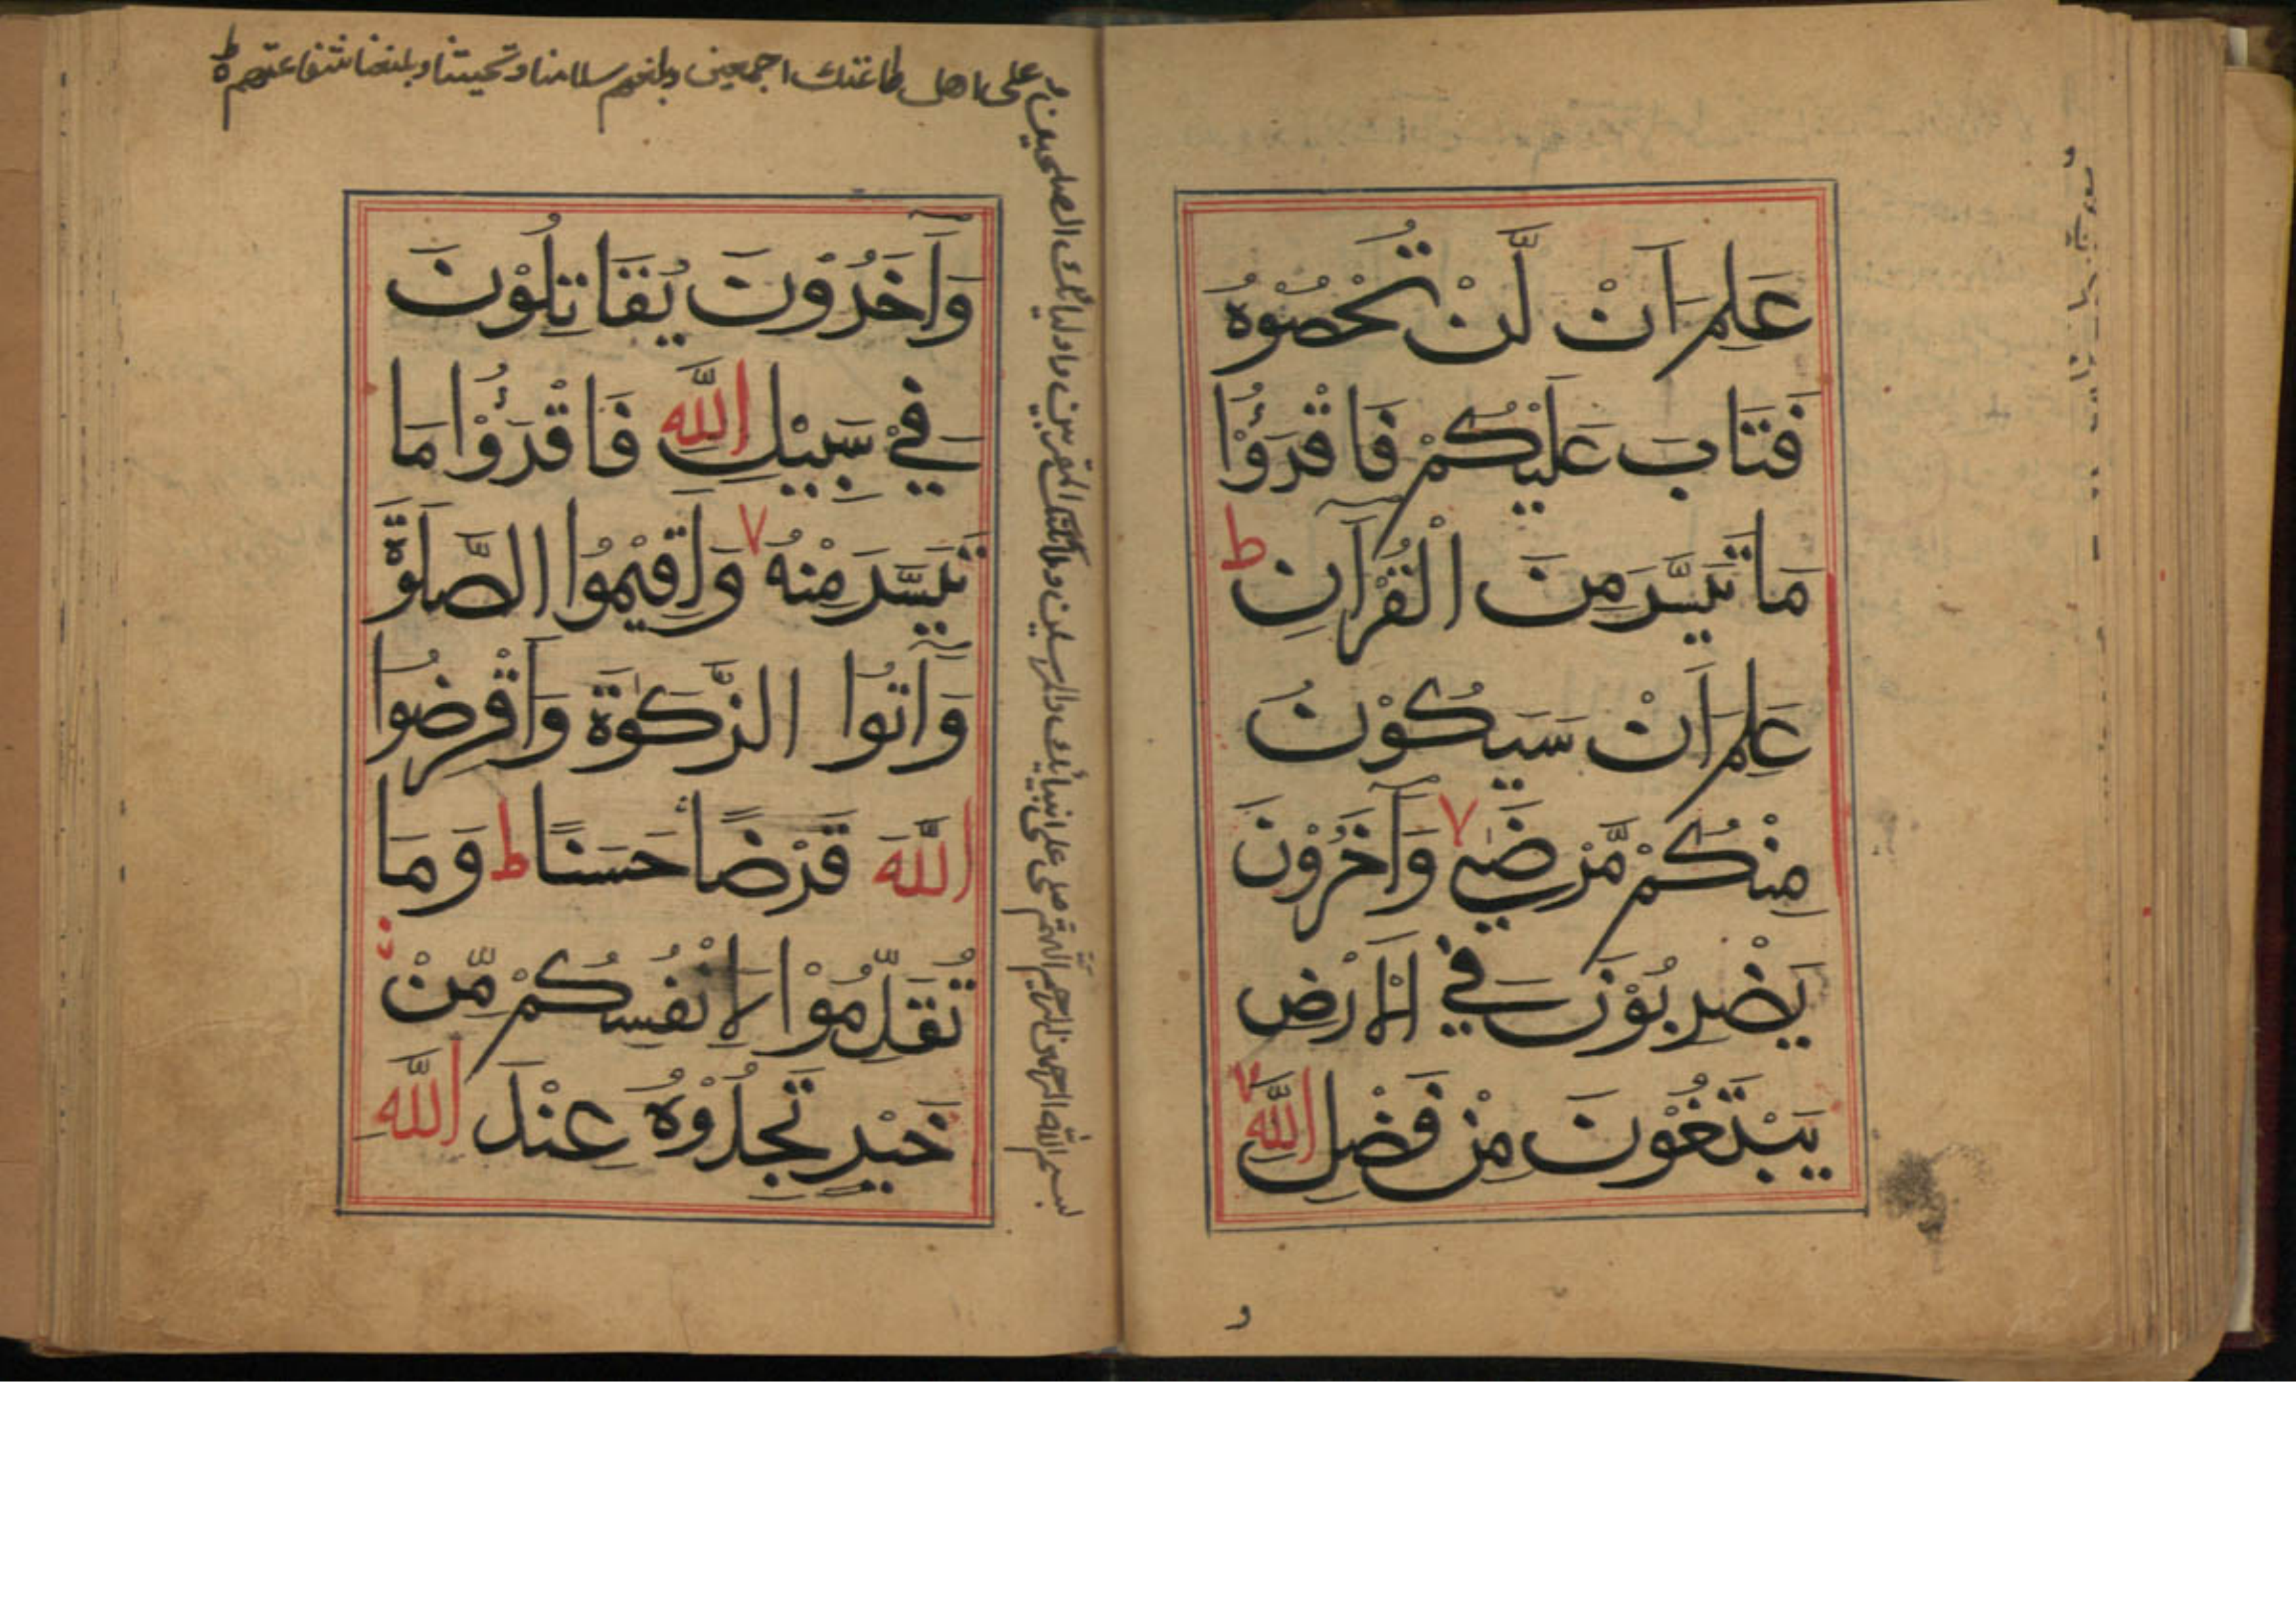 عَلِمَ اَنْ لَّنْ تُحْصُوْهُ
فَتَابَ عَلَيْكُمْ فَاقْرَؤُا
مَا تَيَسَّرَ مِنَ الْقُرْآنِ ط
عَلِمَ اَنْ سَيَكُوْنُ
مِنْكُمْ مَّرْضٰى ٧ وَآخَرُوْنَ
يَضْرِبُوْنَ فِي الْاَرْضِ
يَبْتَغُوْنَ مِنْ فَضْلِ اللّٰهِ ٧
و
وَآخَرُوْنَ يُقَاتِلُوْنَ
فِيْ سَبِيْلِ اللّٰهِ فَاقْرَؤُا مَا
تَيَسَّرَ مِنْهُ ٧ وَاَقِيْمُوا الصَّلٰوةَ
وَآتُوا الزَّكٰوةَ وَاَقْرِضُوا
اللّٰهَ قَرْضًا حَسَنًا ط وَمَا
تُقَدِّمُوْا لِاَنْفُسِكُمْ مِّنْ
خَيْرٍ تَجِدُوْهُ عِنْدَ اللّٰهِ
بسم الله الرحمن الرحيم اللهم صل على انبيائك والمرسلين وملائكتك المقربين واوليائك الصلحين
وعلى اهل طاعتك اجمعين وبلغهم سلامنا وتحيتنا وبلغنا شفاعتهم ط